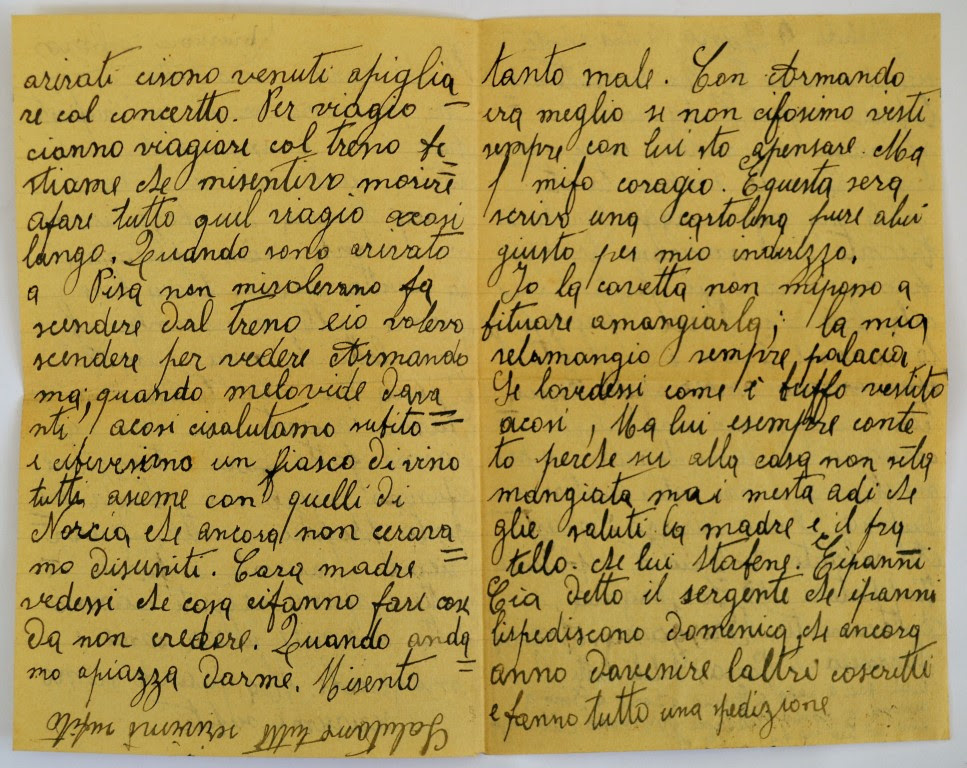 arivati cisono venuti apiglia=
re col concertto. Per viagio
cianno viagiare col treno be=
stiame che misentivo morire
afare tutto quel viagio acosi
lungo. Quando sono arivato
a Pisa non mivolevano fa
scendere dal treno eio volevo
scendere per vedere Armando
ma; quando melovide dava=
nti, acosi cisalutamo subito
e cibevemmo un fiasco di vino
tutti asieme con quelli di
Norcia che ancora non cerava=
mo disuniti. Cara madre
vedessi che cosa cifanno fare cose
da non credere. Quando anda=
mo apiazza darme. Misento
tanto male. Con Armando
era meglio se non cifosimo visti
sempre con lui sto apensare. Ma
mifo coragio. Equesta sera
scrivo una cartolina pure alui
giusto per mio indirizzo.
Io la gavetta non mipono a
bituare amangiarla; la mia
selamangio sempre palacia,
Se lovedessi come è buffo vestito
acosi, Ma lui esempre conte
to perche su alla casa non sela
mangiata mai mesta adi che
glie saluti la madre e il fra
tello. che lui stabene. Eipanni
Cia detto il sergente che ipanni
lispediscono domenica, che ancora
anno davenire laltri coscritti
e fanno tutto una spedizione
Salutame tutti scrivimi subito